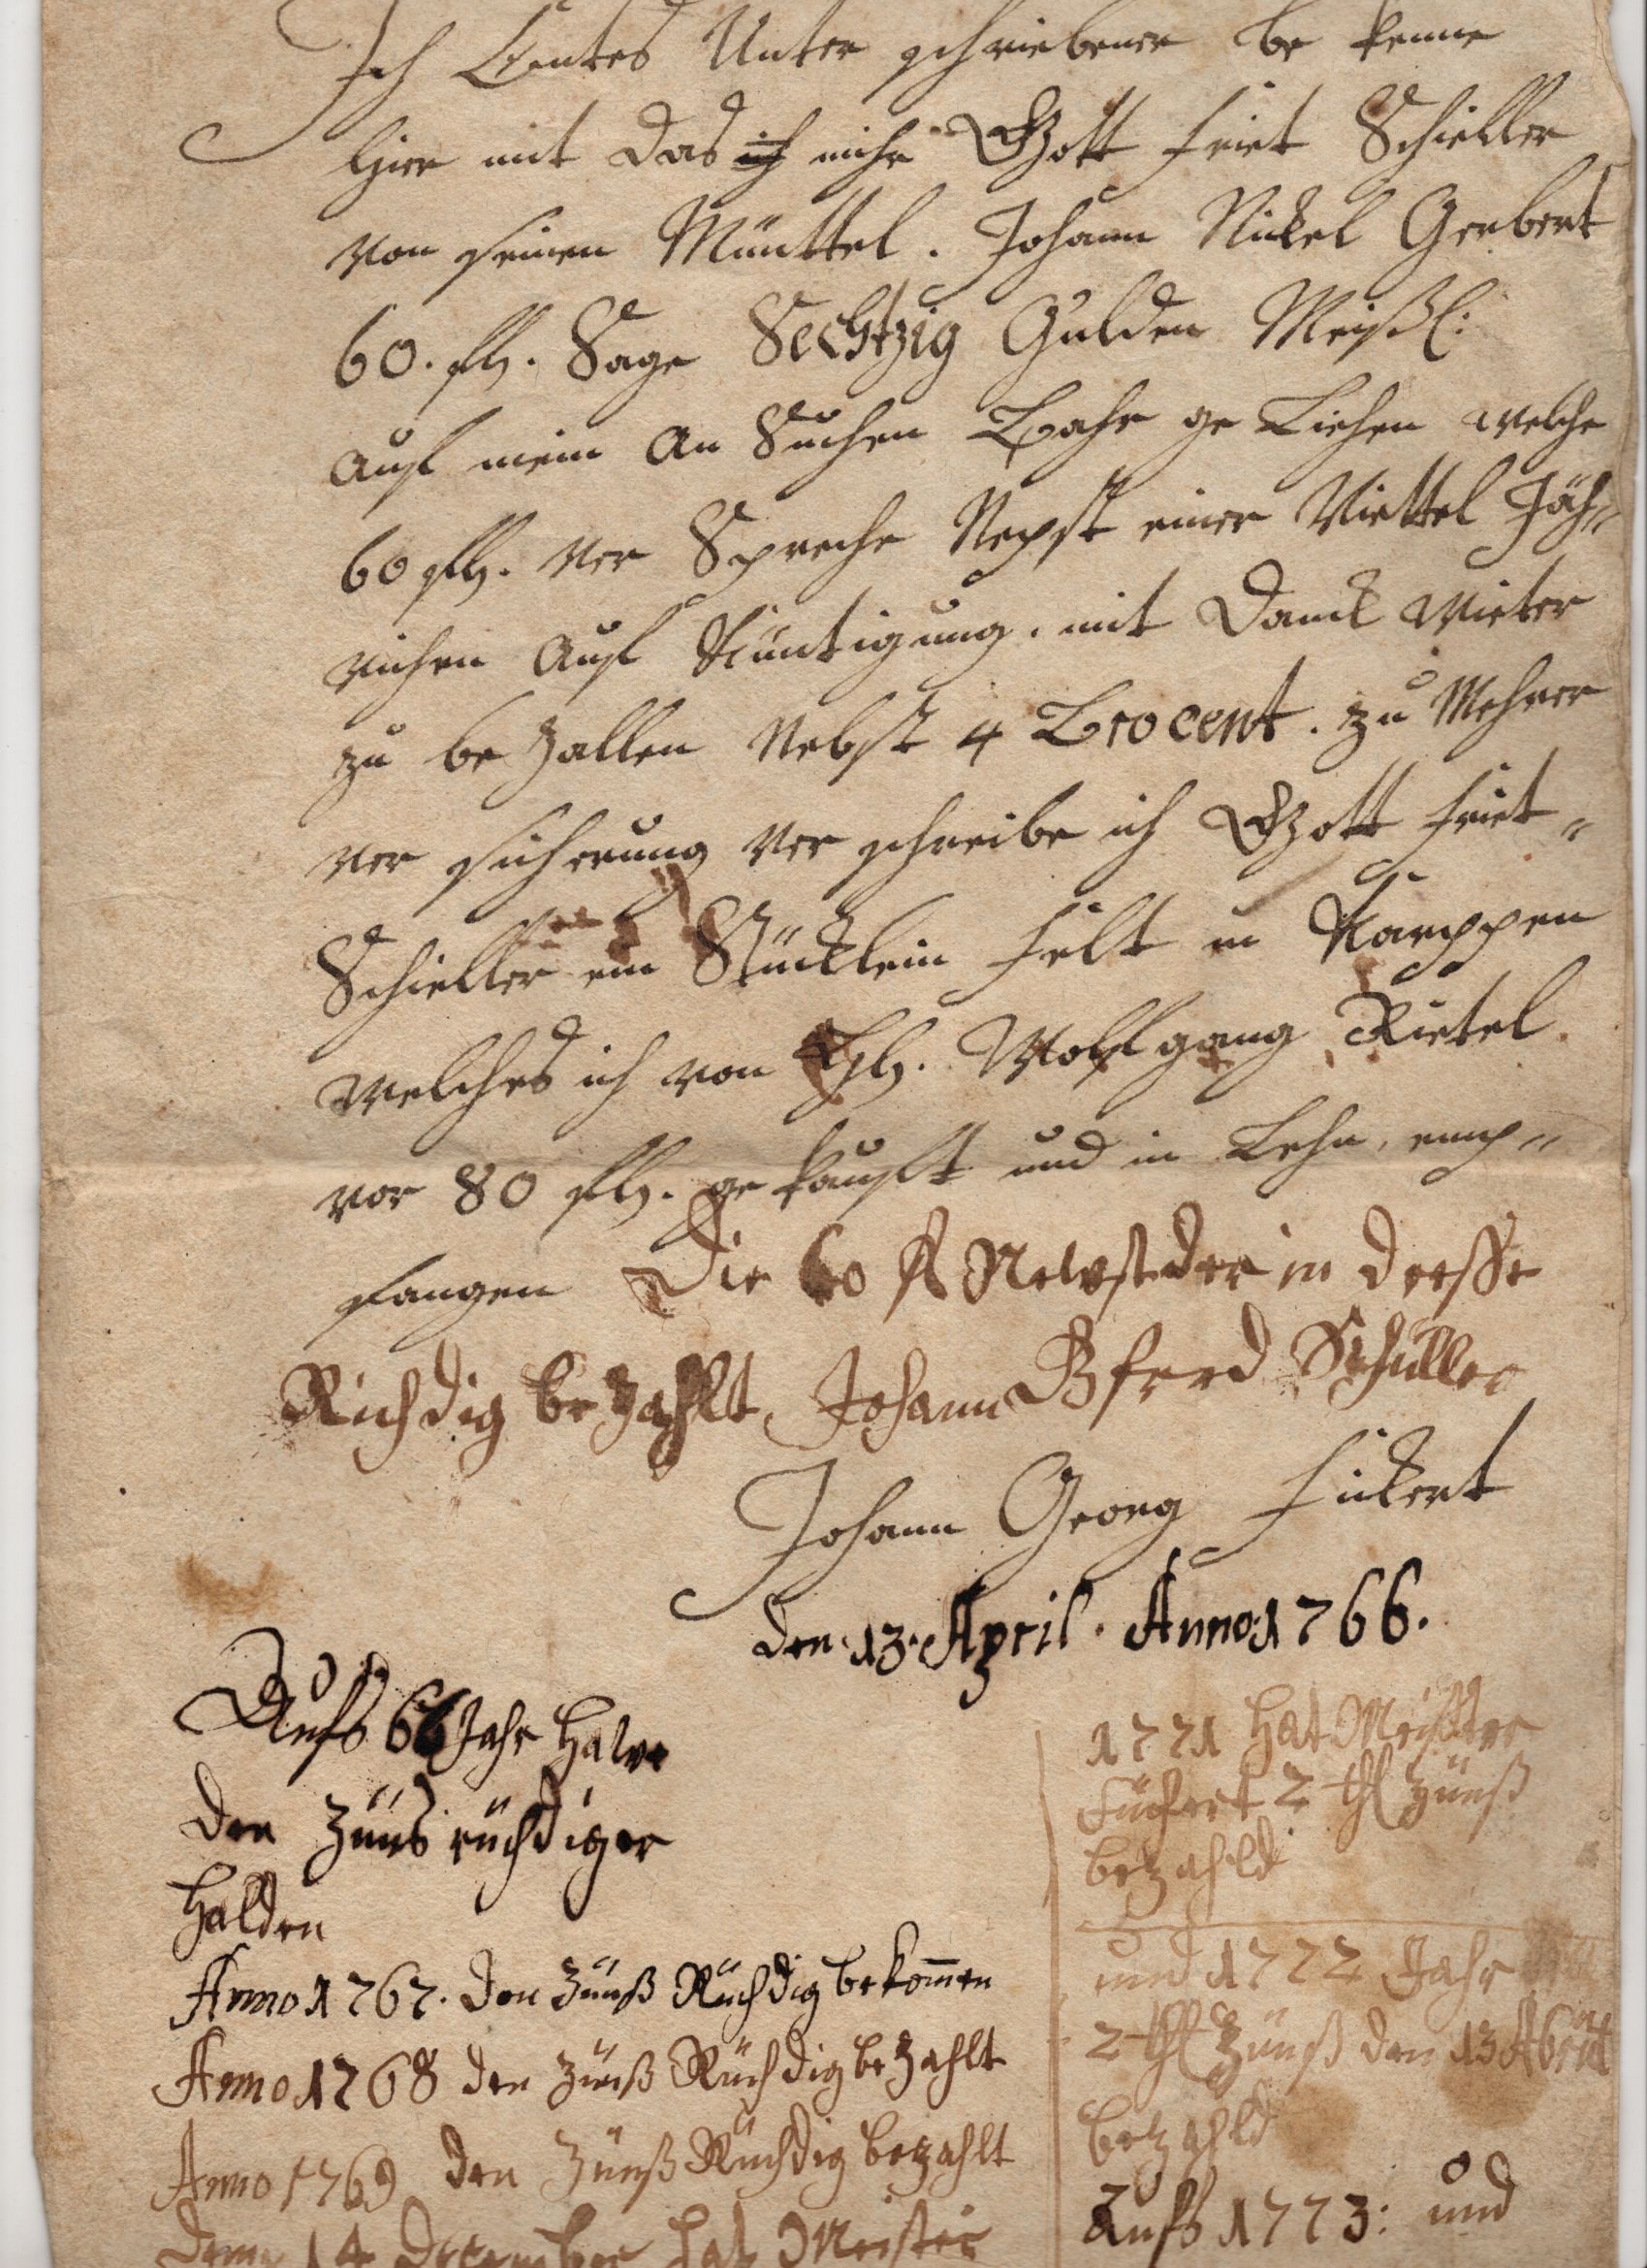 Ich Entes Unter schriebener be kenne
hier mit das ich mihr Gott friet Schieller
von seinen Münttel. Johann Nickel Gerbert
60. fl. Sage Sechtzig Gulden Meißl:
auf mein an Suchen Bahr ge Liehen welche
60 fl. ver Spreche Nepst einer Viettel Jäh-
richen auf Küntigung. mit Danck wieter
zu be Zallen Nebst 4 Brocent. zu Mehrer
ver sicherung ver schreibe ich Gott friet-
Schieller ein Stücklein felt in Karppen
welches ich von Wolfgang Rietel
vor 80 fl. ge kauft und in Lehn, emp-
fangen Die 60 fl in
Richdig be Zahlt Johann Gferd Schüller
Johann Georg Fickert
den. 13. April. Anno. 1766.
Aufs 66 Jahr Habe
den Züns rüchdiger
Halden
Anno 1767. den Zünß Rüchdig bekommen
Anno 1768 den Zünß Rüchdig be Zahlt
Anno 1769 den Zünß Rüchdig bezahlt
Dem 14 December hat Meister
1771 hat Meister
Fückert 2 thl zünß
bezahld
und 1772 Jahr
2 thl Zünß den 13 Abril
bezahld
Aufs 1773: und